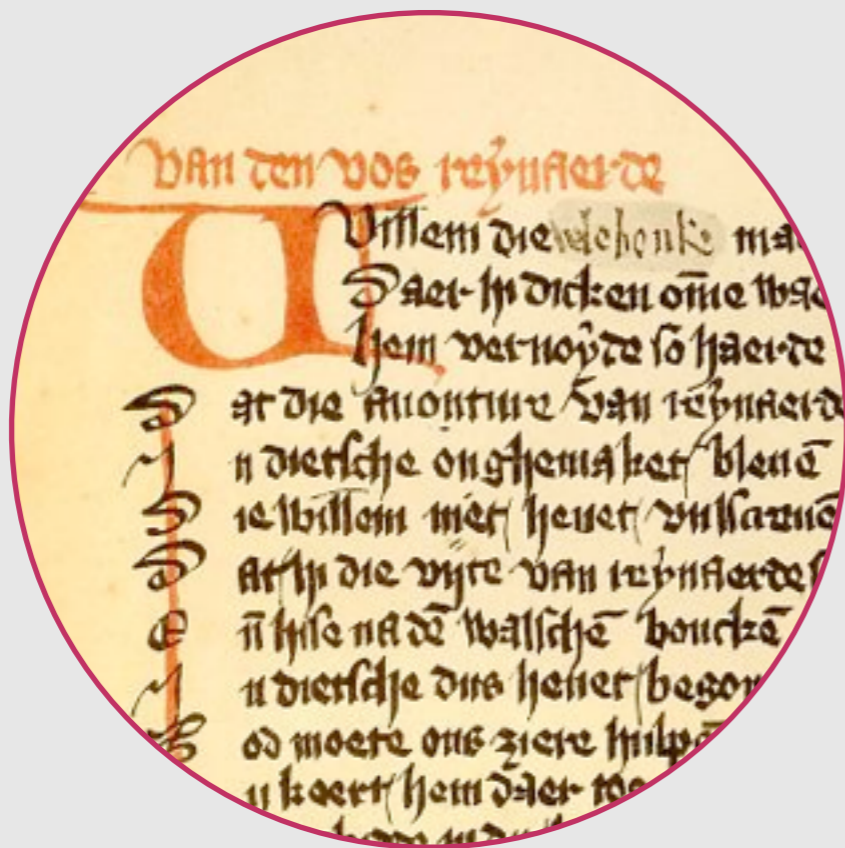 van den vos reynaerde
Willem die vele bouke ma
Daer hi dicken om̄e wae
hem vernoyde so haerde
Dat die auonture van reynaerde
Jn dietsche onghemaket bleuē
Die willem niet heuet vulscreuē
Dat hi die vijte van reynaerde
Eñ hise na dē walschē boucken̄
Jn dietsche dus heuet begon
God moete ons ziere hulpē
Nu keert hem daer toe